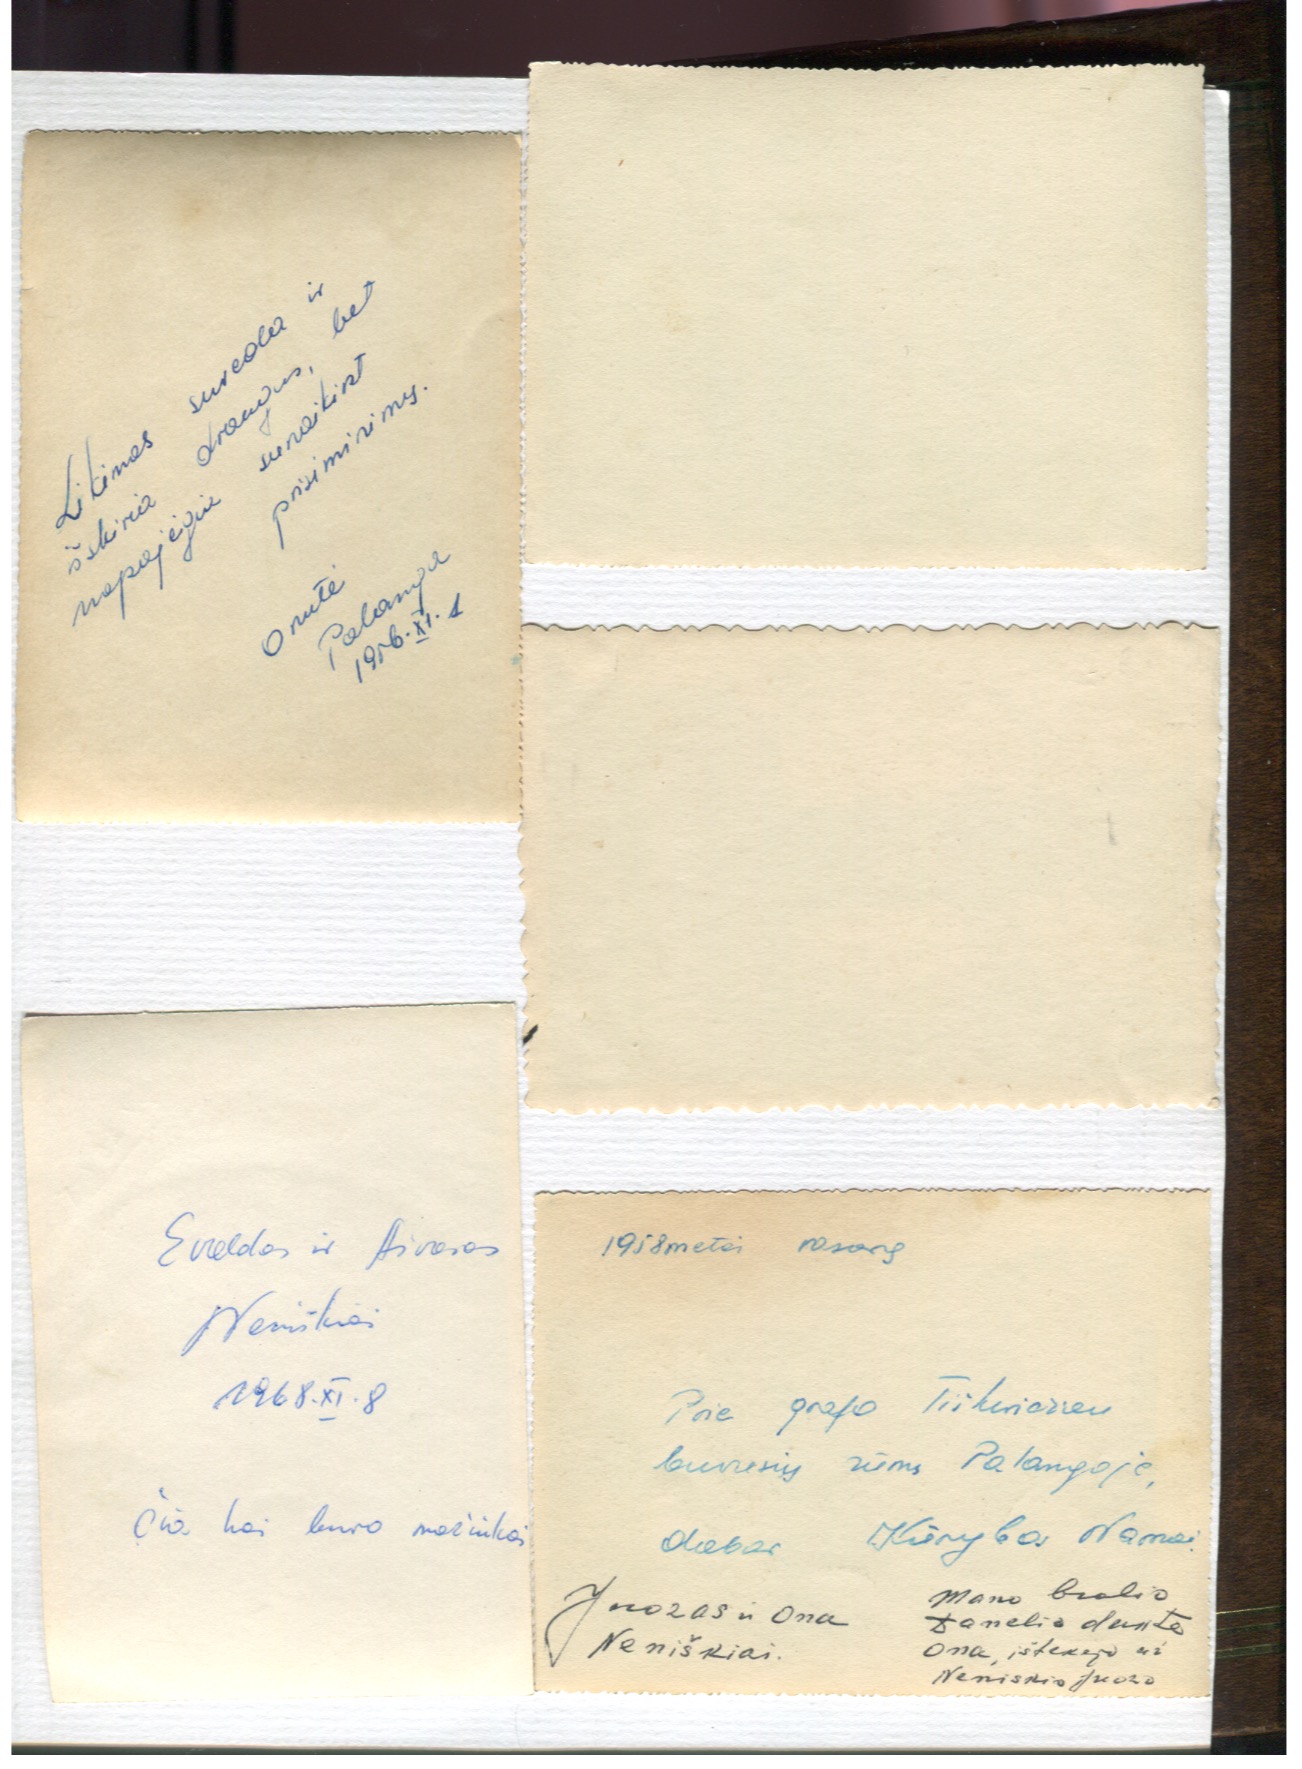 Likimas suveda ir
išskiria draugus, bet
nepajėgia sunaikint
prisiminimų.
Onutė
Palanga
1956.XI.1
Evaldas ir Aivaras
Neniškiai
1968.XI.8
Čia kai buvo mažiukai
1958 metai vasarą
Prie grafo Tiškevičiau
buvusių rūmų Palangoje,
dabar Kūrybos Namai.
Juozas ir Ona
Neniškiai.
Mano brolio
Danelio duktė
Ona, ištekėjo už
Neniškio Juozo